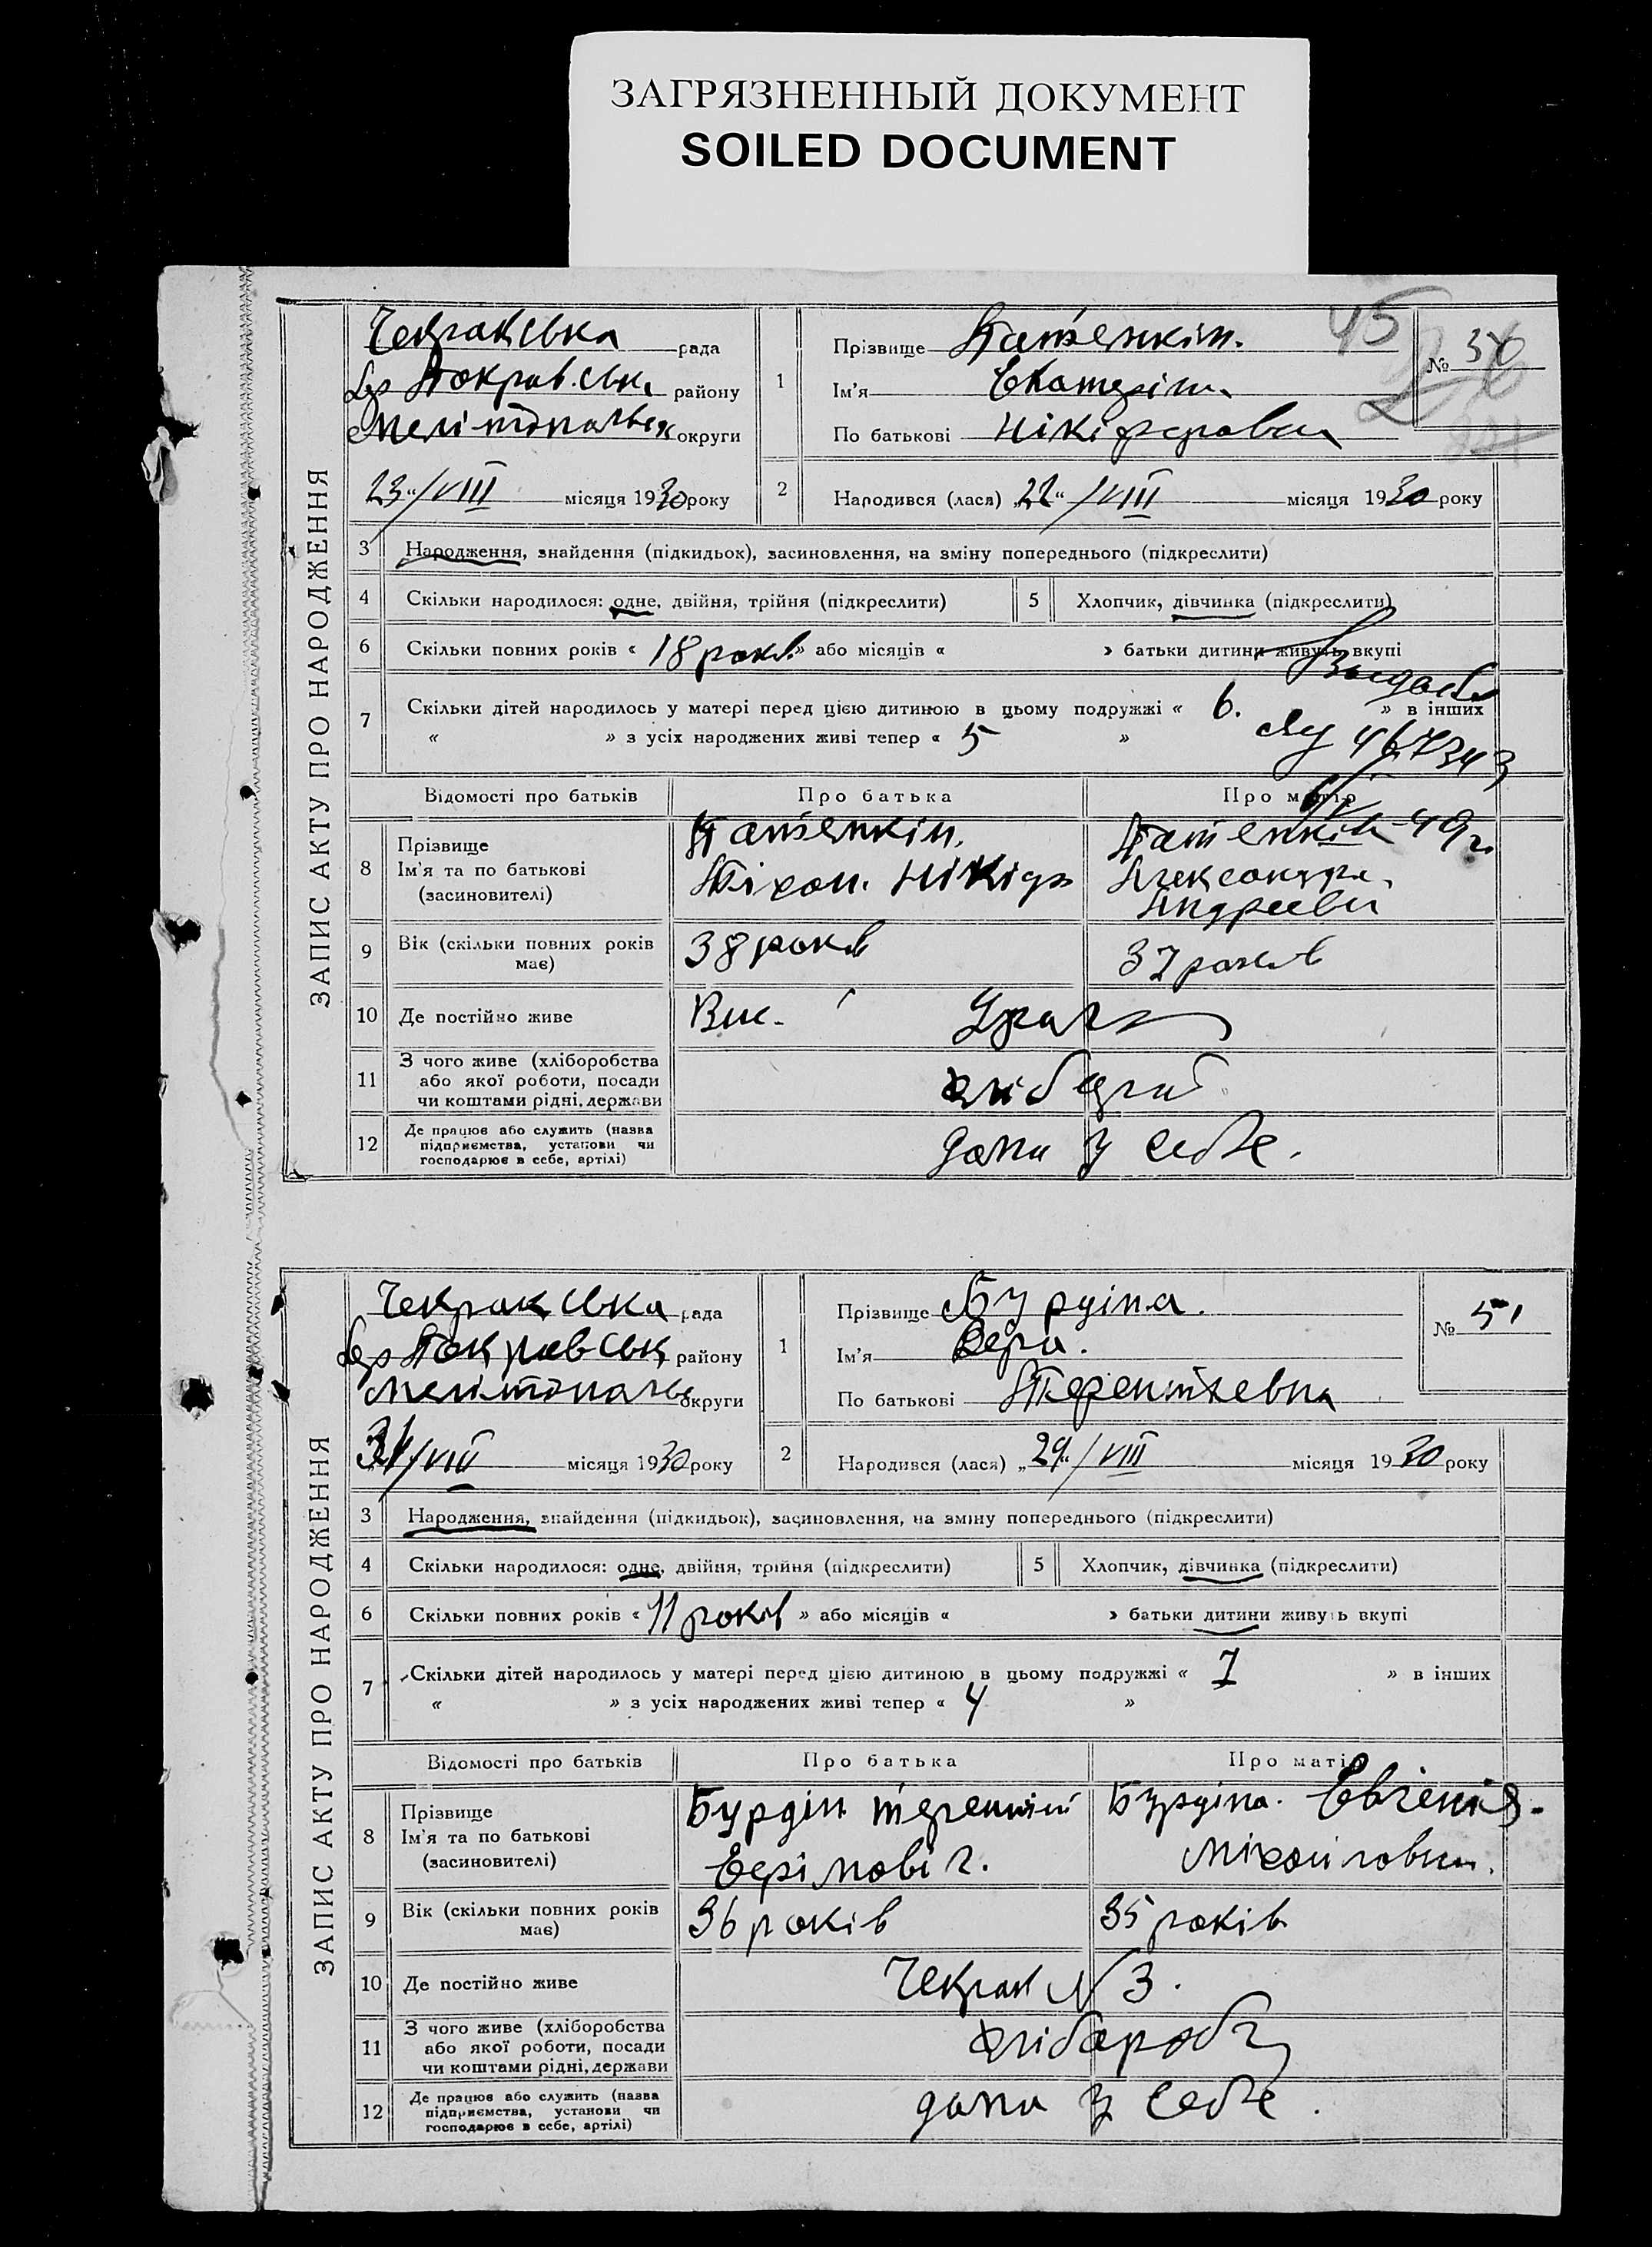 ЗАГРЯЗНЕННЫЙ ДОКУМЕНТ
SOILED DOCUMENT
ЗАПИС АКТУ ПРО НАРОДЖЕННЯ
Чекракська рада
Покравськ району
Мелітопальськ округи
23 / VIII місяця 1930 року
1
Прізвище Патёмкін.
Ім'я Екатеріна
По батькові Нікіфоровна
45
№ 50
2 Народився (лася) „22" / VIII місяця 1930 року
3 Народження, знайдення (підкидьок), засиновлення, на зміну попереднього (підкреслити)
4 Скільки народилося: одне, двійня, трійня (підкреслити) 5 Хлопчик, дівчинка (підкреслити)
6 Скільки повних років « 18 років » або місяців « » батьки дитини живуть вкупі
7 Скільки дітей народилось у матері перед цією дитиною в цьому подружжі « 6. » в інших
« » з усіх народжених живі тепер « 5 »
Відомості про батьків Про батька Про матір
8 Прізвище
Ім'я та по батькові
(засиновителі)
Патёмкін.
Тіхон. Нікіф
Патёмкіна
Александра
Андреевн
49 г.
9 Вік (скільки повних років має) 38 років 37 років
10 Де постійно живе Вис.
11 З чого живе (хліборобства
або якої роботи, посади
чи коштами рідні, держави
12 Де працює або служить (назва
підприємства, установи чи
господарює в себе, артілі)
дома у себе.
ЗАПИС АКТУ ПРО НАРОДЖЕННЯ
Чекракська рада
Покравськ району
Мелітопальс округи
31/VIII місяця 1930 року
1
Прізвище Бурдіна.
Ім'я Вера.
По батькові Терентьевна
№ 51
2 Народився (лася) „29" / VIII місяця 1930 року
3 Народження, знайдення (підкидьок), засиновлення, на зміну попереднього (підкреслити)
4 Скільки народилося: одне, двійня, трійня (підкреслити) 5 Хлопчик, дівчинка (підкреслити)
6 Скільки повних років « 11 років » або місяців « » батьки дитини живуть вкупі
7 Скільки дітей народилось у матері перед цією дитиною в цьому подружжі « 7 » в інших
« » з усіх народжених живі тепер « 4 »
Відомості про батьків Про батька Про матір
8 Прізвище
Ім'я та по батькові
(засиновителі)
Бурдін Терентій
Ефімовіч.
Бурдіна. Евгенія.
Міхайловна.
9 Вік (скільки повних років має) 36 років 35 років
10 Де постійно живе Чекрак N 3.
11 З чого живе (хліборобства
або якої роботи, посади
чи коштами рідні, держави
хлібаробч
12 Де працює або служить (назва
підприємства, установи чи
господарює в себе, артілі)
дома у себе.